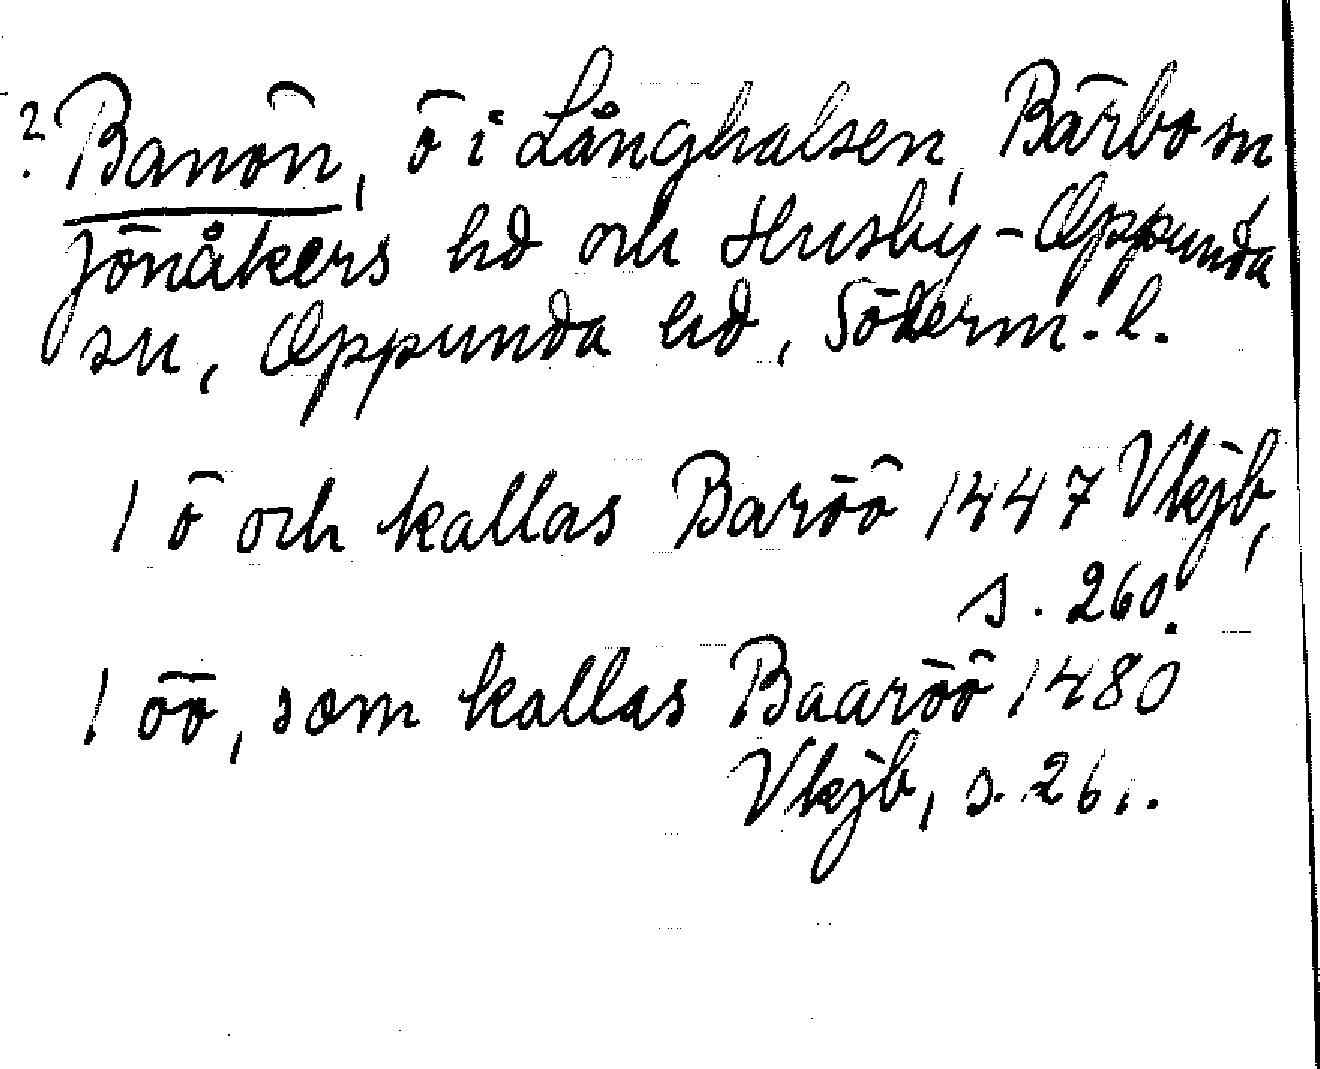 ? Banön, ö i Långhalsen, Bärbo sn
Jönåkers hd och Husby-Oppunda
sn, Oppunda hd, Söderm. l.
1 ö och kallas Baröö 1447 Vkjb,
s. 260.
1 öö, som kallas Baaröö 1480
Vkjb, s. 261.